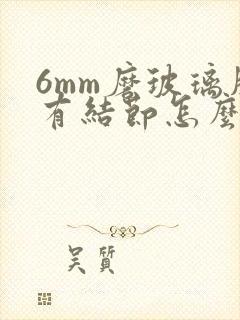 6mm磨玻璃
有結節怎麼
吴質